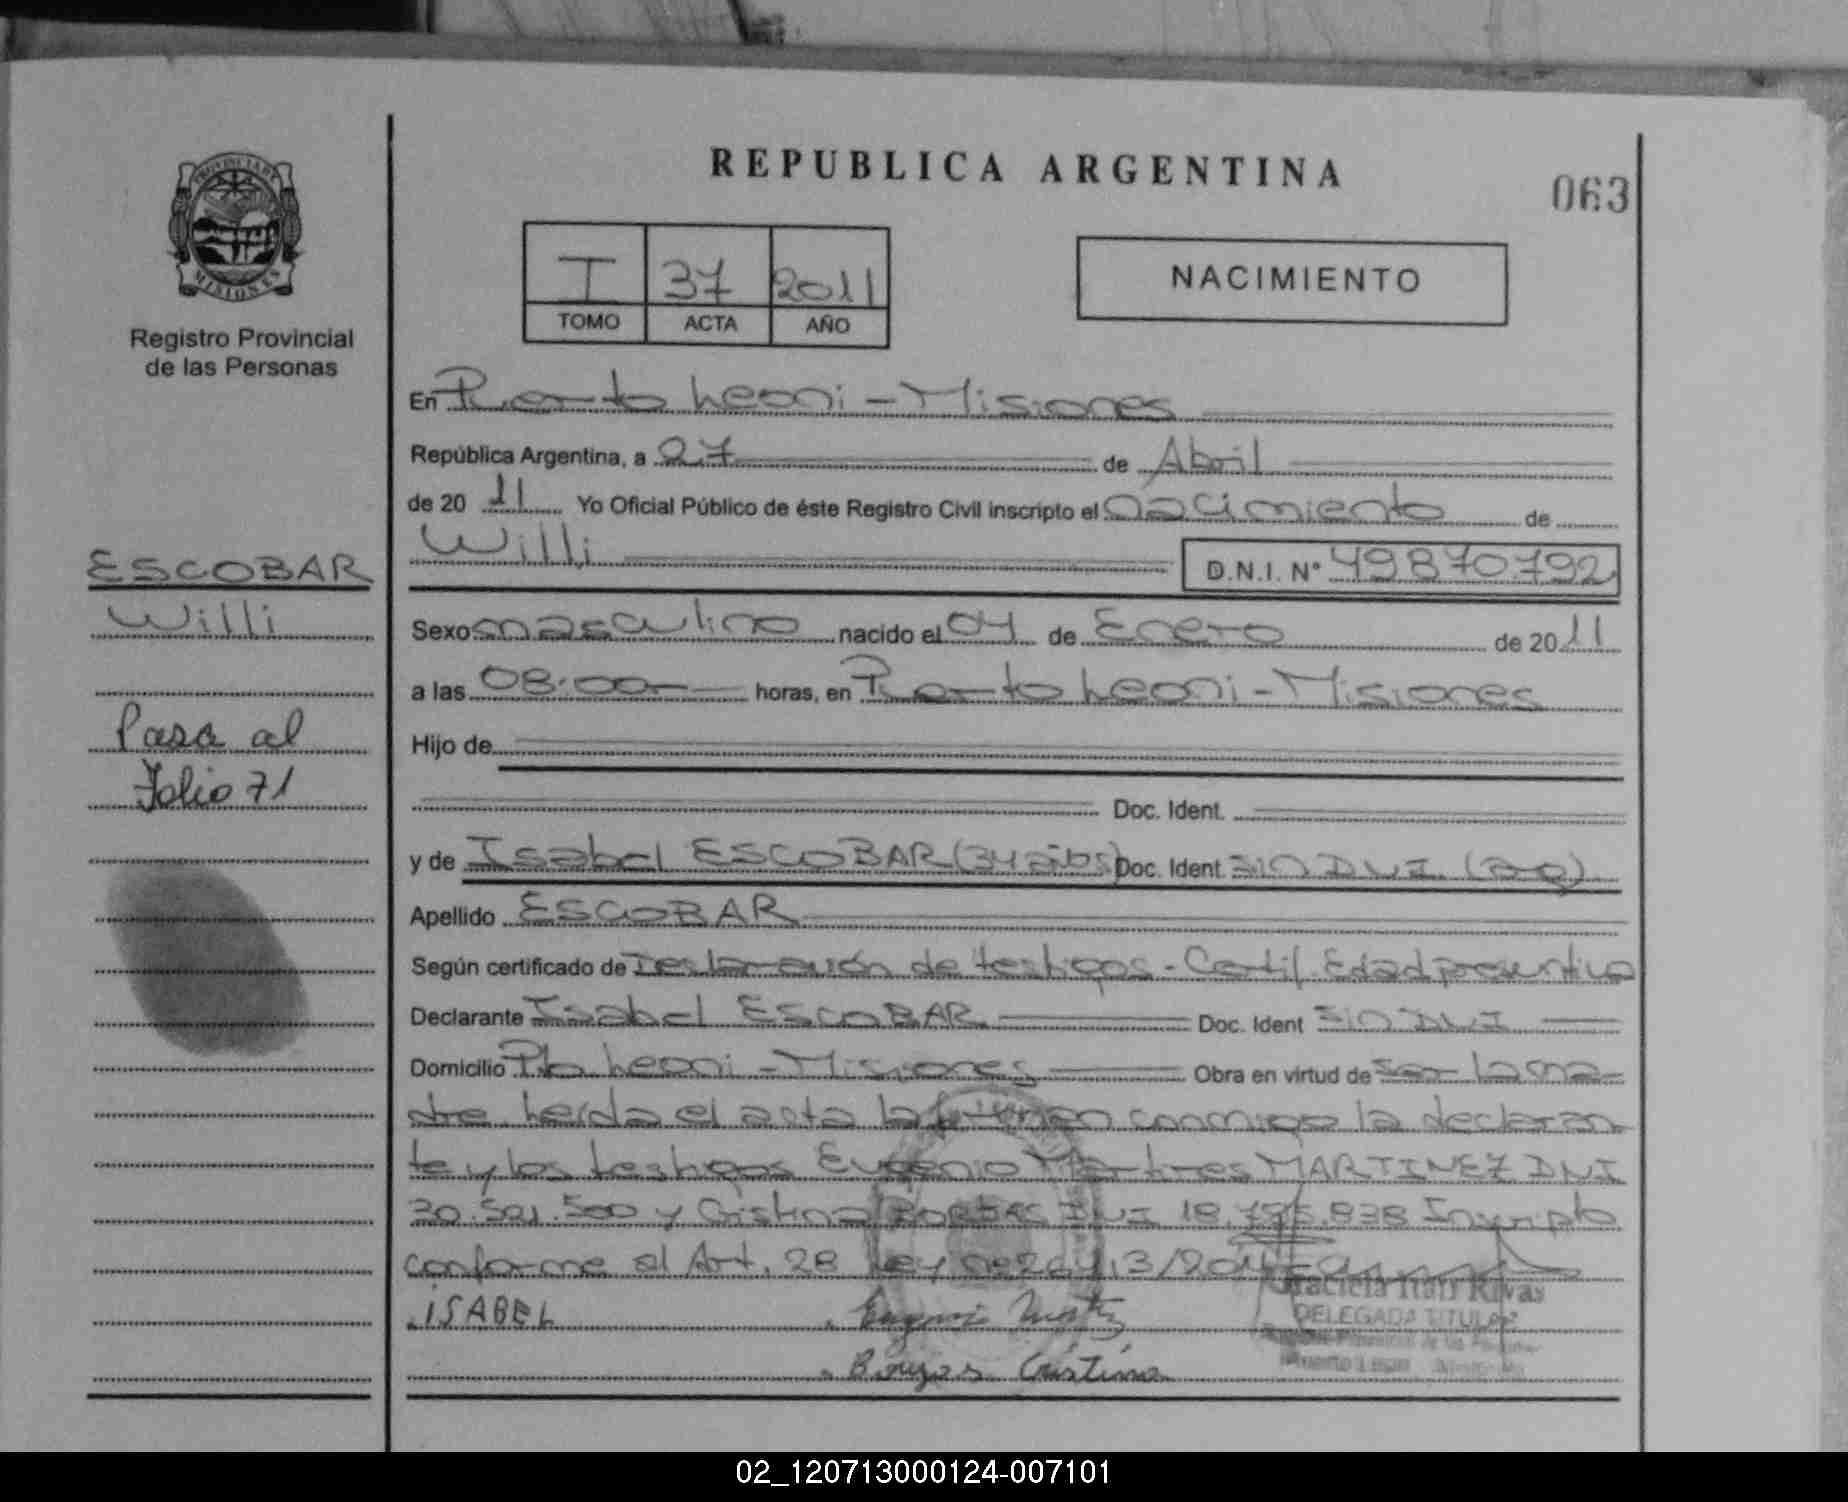 REPUBLICA ARGENTINA
063
PROVINCIA DE MISIONES
Registro Provincial
de las Personas
I 37 2011
TOMO ACTA AÑO
NACIMIENTO
En Puerto Leoni - Misiones
República Argentina, a 27 de Abril
de 2011 Yo Oficial Público de éste Registro Civil inscripto el nacimiento de
Willi D.N.I. N° 49870792
ESCOBAR
Willi
Pasa al
Folio 71
Sexo masculino nacido el 04 de Enero de 2011
a las 08:00 horas, en Puerto Leoni - Misiones
Hijo de
Doc. Ident.
y de Isabel ESCOBAR (34 años) Doc. Ident. SIN DNI.
Apellido ESCOBAR
Según certificado de Declaración de testigos - Certif. Edad presuntiva
Declarante Isabel ESCOBAR Doc. Ident SIN DNI
Domicilio Pto Leoni - Misiones Obra en virtud de ser la ma-
dre Leída el acta la firman conmigo la declaran
te y los testigos Eugenio Martires MARTINEZ DNI
30.501.500 y Cristina BORJAS DNI 18.795.838 Inscripto
conforme al Art. 28 Ley
ISABEL
Borjas Cristina
Graciela Itatí Rivas
DELEGADA TITULAR
02_120713000124-007101